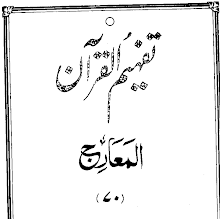 تفہیم القرآن
المعارج
(۷۰)